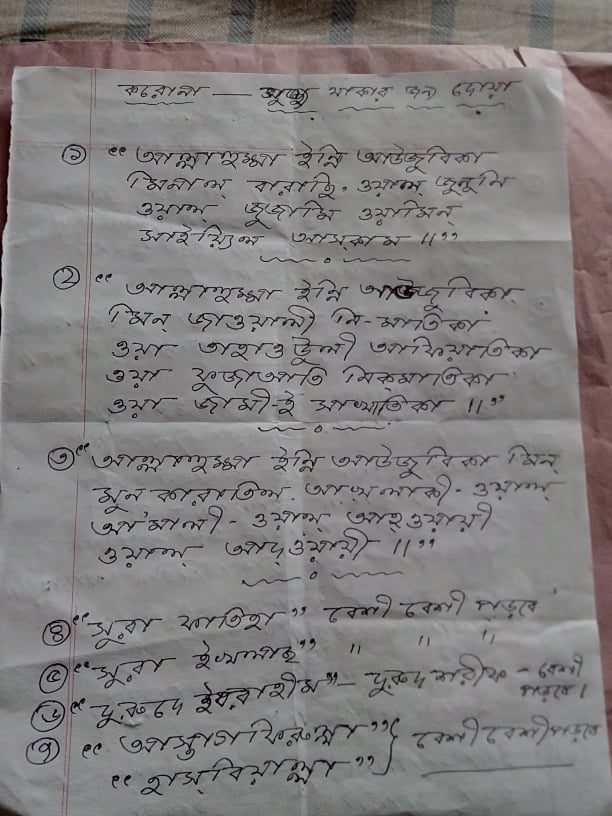 করোনা — মুক্ত থাকার জন্য দোয়া
১ “আল্লাহুম্মা ইন্নি আউজুবিকা
মিনাল্ বারাছি- ওয়াল জুনুনি
ওয়াল্ জুজামি ওয়ামিন্
সাইয়্যিল আসকাম ॥”
২ “আল্লাহুম্মা ইন্নি আউজুবিকা
মিন্ জাওয়ালী নি-মাতিকা
ওয়া তাহাওউলী আফিয়াতিকা
ওয়া ফুজাআতি নিকমাতিকা
ওয়া জামী-ই সাখাতিকা ॥”
৩ “আল্লাহুম্মা ইন্নি আউজুবিকা মিন্
মুন কারাতিল্ আখলাকী- ওয়াল্
আ'মালী - ওয়াল্ আহওয়ায়ী
ওয়াল্ আদ্ওয়ায়ী ॥”
৪ “সুরা ফাতিহা” বেশী বেশী পড়বে
৫ “সুরা ইখলাছ” ” ” ”
৬ “দুরুদে ইবরাহীম” – দুরুদ শরীফ – বেশী
পড়বে।
৭ “আস্তাগফিরুল্লা” } বেশী বেশী পড়বে
“হাস্বিয়াল্লা”